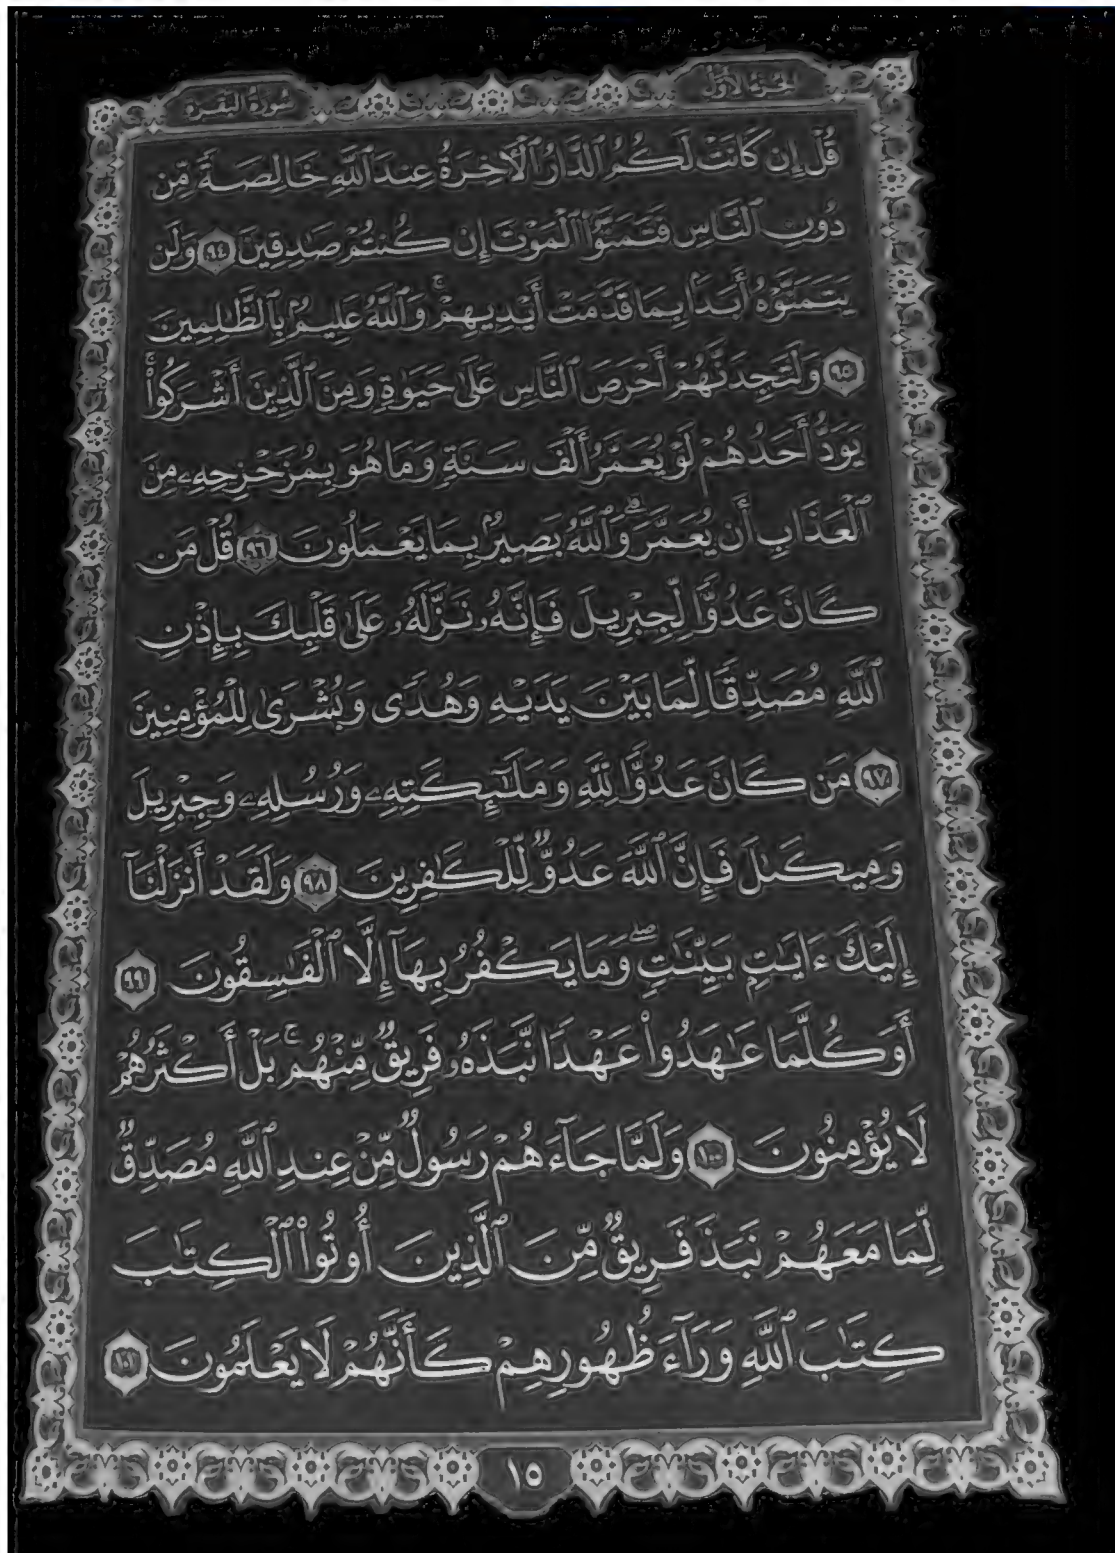 الجزء الأول
سورة البقرة
قُلْ إِن كَانَتْ لَكُمُ ٱلدَّارُ ٱلْآخِرَةُ عِندَ ٱللَّهِ خَالِصَةً مِّن
دُونِ ٱلنَّاسِ فَتَمَنَّوُا۟ ٱلْمَوْتَ إِن كُنتُمْ صَٰدِقِينَ ٩٤ وَلَن
يَتَمَنَّوْهُ أَبَدًۢا بِمَا قَدَّمَتْ أَيْدِيهِمْ ۗ وَٱللَّهُ عَلِيمٌۢ بِٱلظَّٰلِمِينَ
٩٥ وَلَتَجِدَنَّهُمْ أَحْرَصَ ٱلنَّاسِ عَلَىٰ حَيَوٰةٍ وَمِنَ ٱلَّذِينَ أَشْرَكُوا۟ ۚ
يَوَدُّ أَحَدُهُمْ لَوْ يُعَمَّرُ أَلْفَ سَنَةٍ وَمَا هُوَ بِمُزَحْزِحِهِۦ مِنَ
ٱلْعَذَابِ أَن يُعَمَّرَ ۗ وَٱللَّهُ بَصِيرٌۢ بِمَا يَعْمَلُونَ ٩٦ قُلْ مَن
كَانَ عَدُوًّا لِّجِبْرِيلَ فَإِنَّهُۥ نَزَّلَهُۥ عَلَىٰ قَلْبِكَ بِإِذْنِ
ٱللَّهِ مُصَدِّقًا لِّمَا بَيْنَ يَدَيْهِ وَهُدًى وَبُشْرَىٰ لِلْمُؤْمِنِينَ
٩٧ مَن كَانَ عَدُوًّا لِّلَّهِ وَمَلَٰٓئِكَتِهِۦ وَرُسُلِهِۦ وَجِبْرِيلَ
وَمِيكَىٰلَ فَإِنَّ ٱللَّهَ عَدُوٌّ لِّلْكَٰفِرِينَ ٩٨ وَلَقَدْ أَنزَلْنَآ
إِلَيْكَ ءَايَٰتٍۭ بَيِّنَٰتٍ ۖ وَمَا يَكْفُرُ بِهَآ إِلَّا ٱلْفَٰسِقُونَ ٩٩
أَوَكُلَّمَا عَٰهَدُوا۟ عَهْدًا نَّبَذَهُۥ فَرِيقٌ مِّنْهُم ۚ بَلْ أَكْثَرُهُمْ
لَا يُؤْمِنُونَ ١٠٠ وَلَمَّا جَآءَهُمْ رَسُولٌ مِّنْ عِندِ ٱللَّهِ مُصَدِّقٌ
لِّمَا مَعَهُمْ نَبَذَ فَرِيقٌ مِّنَ ٱلَّذِينَ أُوتُوا۟ ٱلْكِتَٰبَ
كِتَٰبَ ٱللَّهِ وَرَآءَ ظُهُورِهِمْ كَأَنَّهُمْ لَا يَعْلَمُونَ ١٠١
١٥